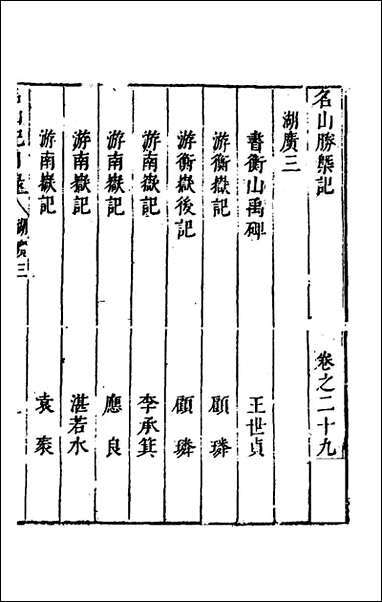 名山勝槩記 卷之二十九
湖廣三
書衡山禹碑 王世貞
游衡嶽記 顧璘
游衡嶽後記 顧璘
游南嶽記 李承箕
游南嶽記 應良
游南嶽記 湛若水
游南嶽記 袁袠
湖廣三